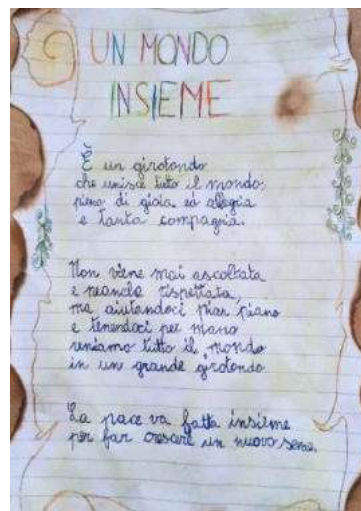 UN MONDO
INSIEME
È un girotondo
che unisce tutto il mondo:
pieno di gioia ed allegria
e tanta compagnia.
Non viene mai ascoltata
e neanche rispettata,
ma aiutandoci pian piano
e tenendoci per mano
uniamo tutto il mondo
in un grande girotondo.
La pace va fatta insieme
per far crescere un nuovo seme.